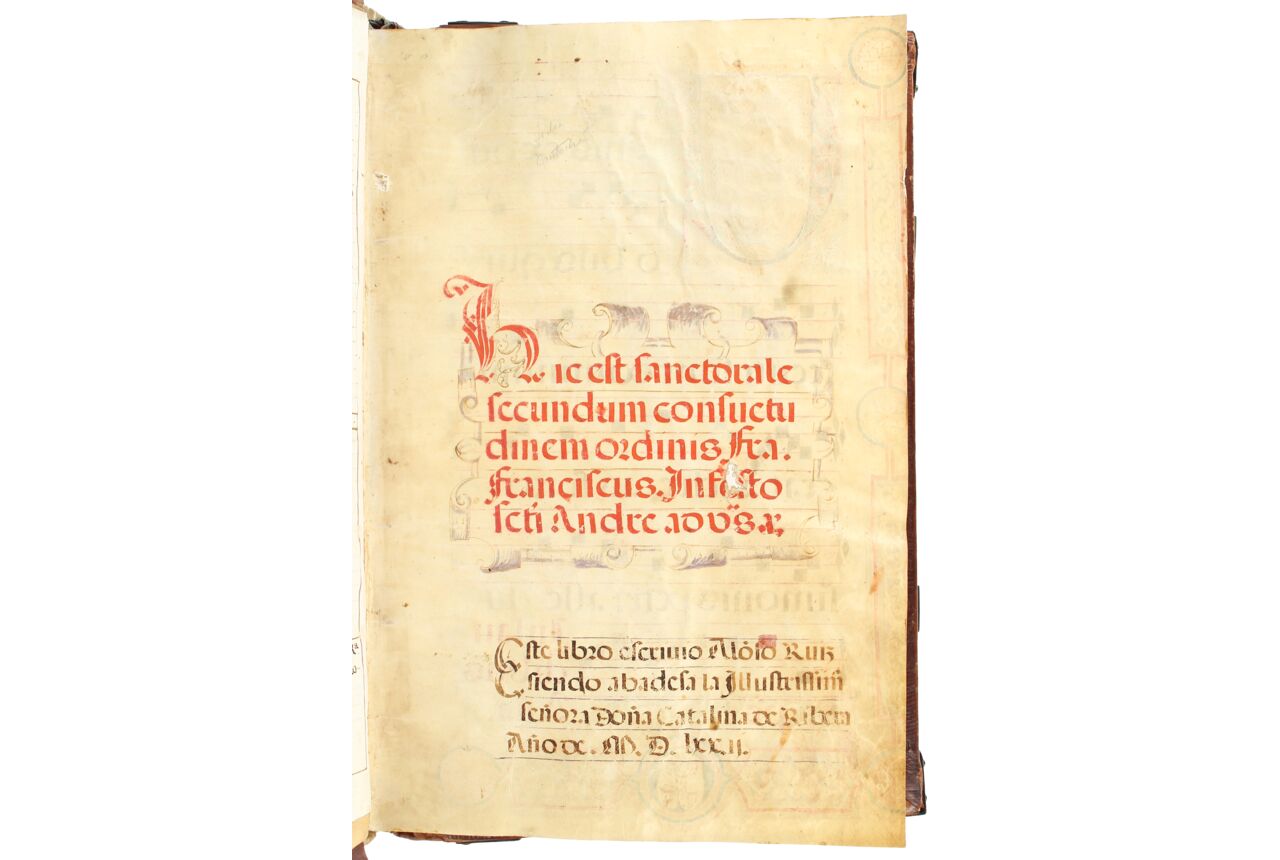 Hic est sanctorale
secundum consuetu
dinem ordinis Fra.
Franciscus. In festo
scti Andre ad vŝ̃s. a;
Este libro escriuio Alõso Ruiz
siendo abadesa la Illustrissim̃
señora Doña Catalina de Ribera
Año de. M. D. lxxii.